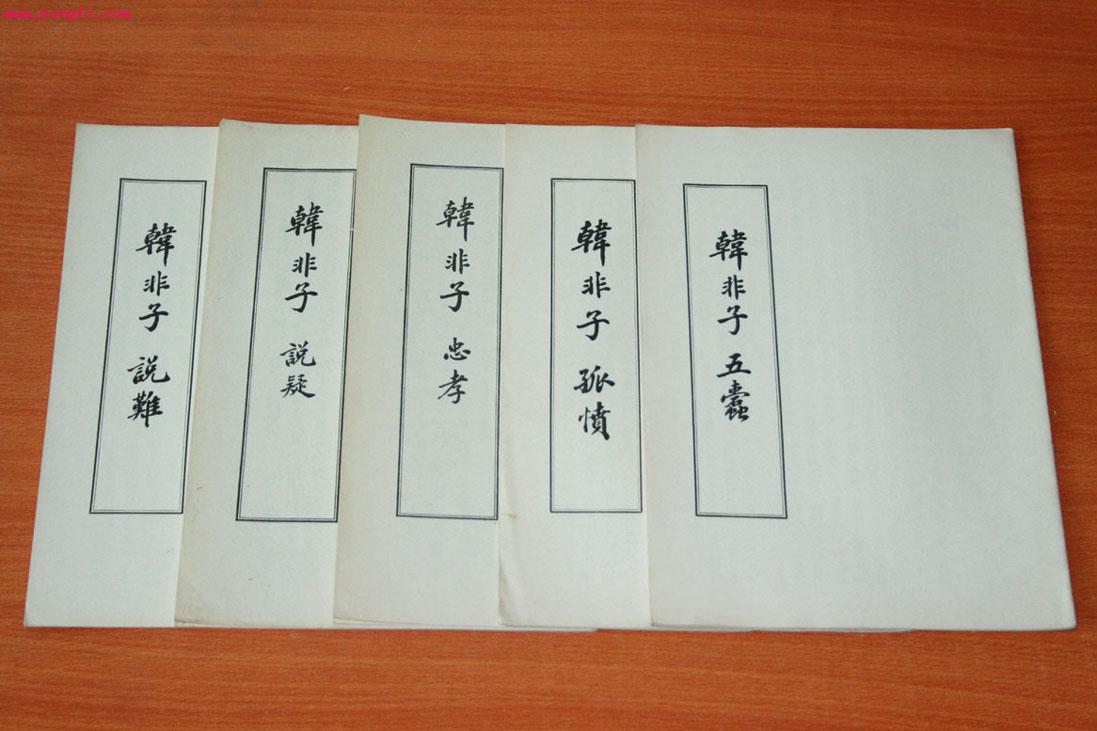 www.kongfz.com
韓非子 說難
韓非子 說疑
韓非子 忠孝
韓非子 孤憤
韓非子 五蠹